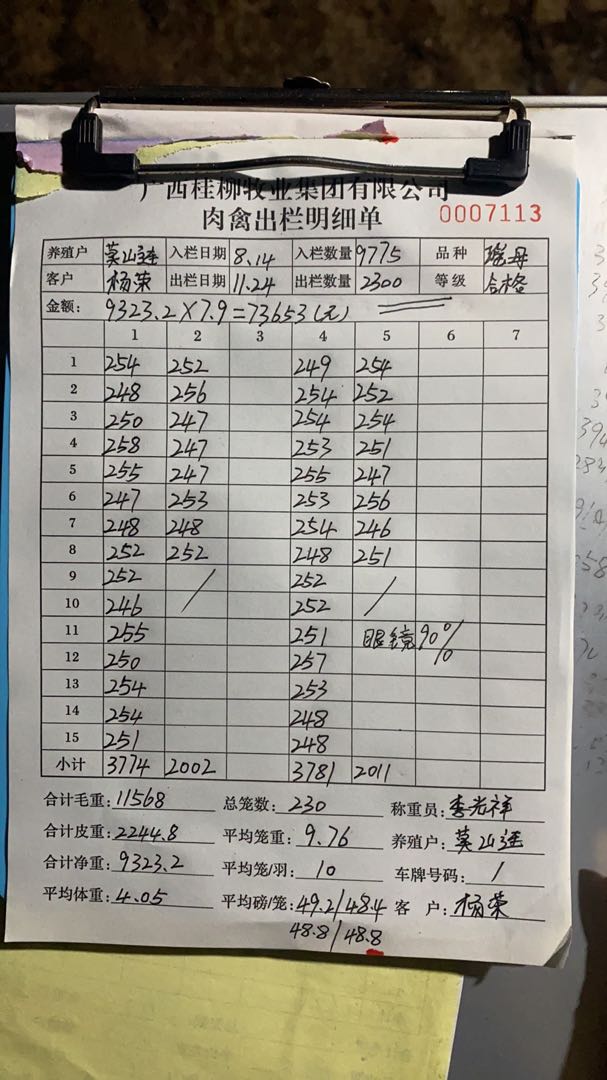 广西桂柳牧业集团有限公司
肉禽出栏明细单 0007113
养殖户 莫山连 入栏日期 8.14 入栏数量 9775 品种 瑶母
客户 杨荣 出栏日期 11.24 出栏数量 2300 等级 合格
金额: 9323.2×7.9=73653(元)
1 2 3 4 5 6 7
1 254 252 249 254
2 248 256 254 252
3 250 247 254 254
4 258 247 253 251
5 255 247 255 247
6 247 253 253 256
7 248 248 254 246
8 252 252 248 251
9 252 / 252 /
10 246 252
11 255 251 眼镜90%
12 250 257
13 254 253
14 254 248
15 251 248
小计 3774 2002 3781 2011
合计毛重: 11568 总笼数: 230 称重员: 李光祥
合计皮重: 2244.8 平均笼重: 9.76 养殖户: 莫山连
合计净重: 9323.2 平均笼/羽: 10 车牌号码: /
平均体重: 4.05 平均磅/笼: 49.2/48.4 客户: 杨荣
48.8/48.8